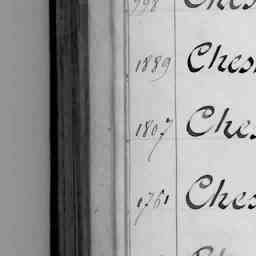 998 Ches
1889 Ches
1807 Ches
1761 Ches